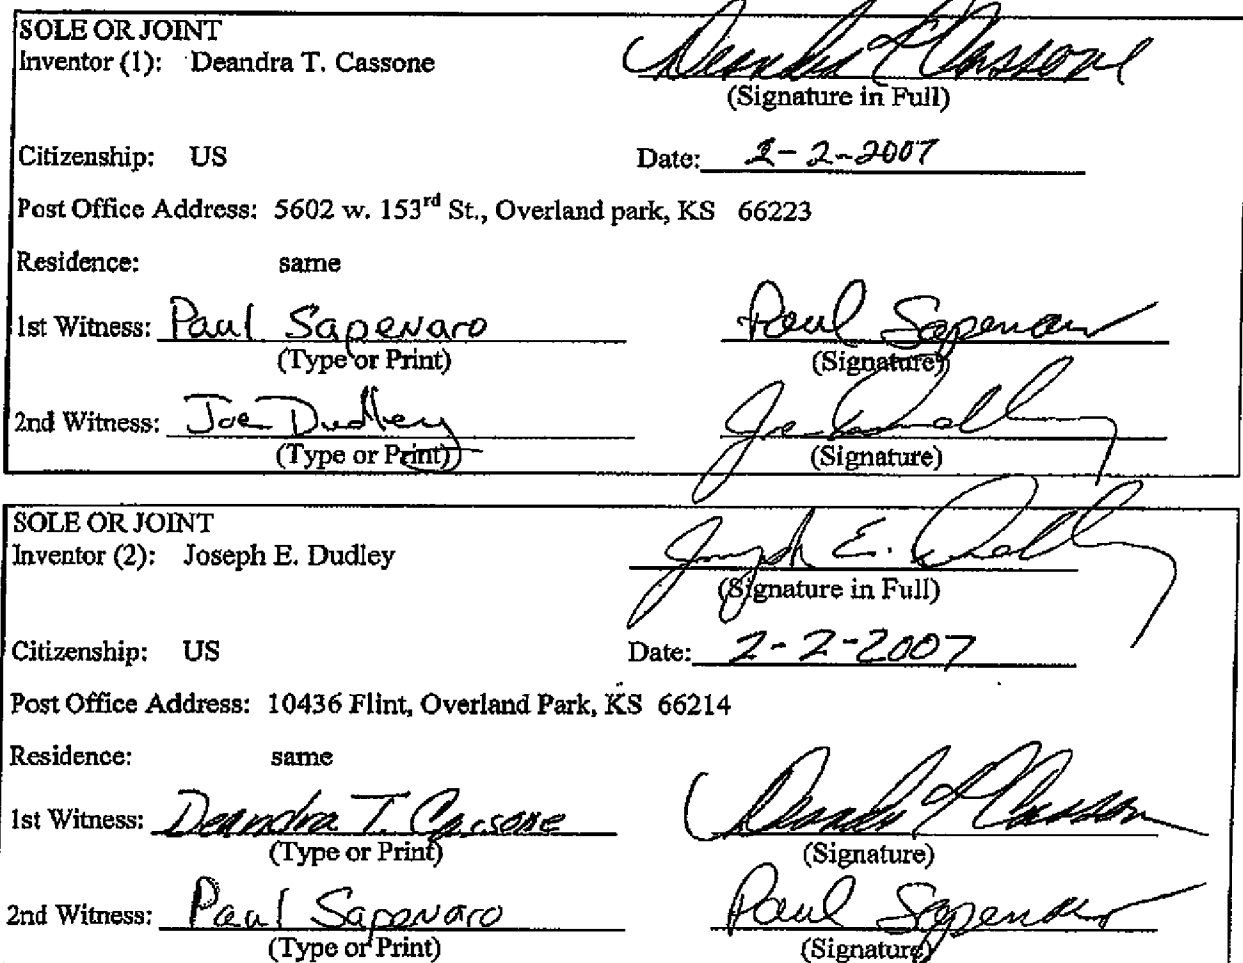 SOLE OR JOINT
Inventor (1): Deandra T. Cassone Deandra T Cassone
(Signature in Full)
Citizenship: US Date: 2-2-2007
Post Office Address: 5602 w. 153rd St., Overland park, KS 66223
Residence: same
1st Witness: Paul Sapenaro Paul Sapenaro
(Type or Print) (Signature)
2nd Witness: Joe Dudley Joe Dudley
(Type or Print) (Signature)
SOLE OR JOINT
Inventor (2): Joseph E. Dudley Joseph E. Dudley
(Signature in Full)
Citizenship: US Date: 2-2-2007
Post Office Address: 10436 Flint, Overland Park, KS 66214
Residence: same
1st Witness: Deandra T. Cassone Deandra T Cassone
(Type or Print) (Signature)
2nd Witness: Paul Sapenaro Paul Sapenaro
(Type or Print) (Signature)